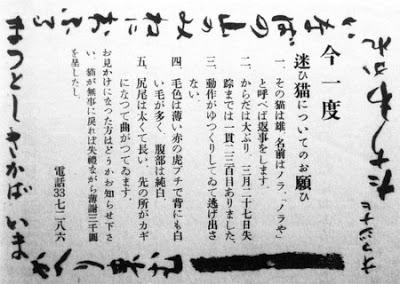 オマジナヒ
たちわかれ
いなばの山のみねにおふる
まつとしきかば いま
今一度
迷ひ猫についてのお願ひ
一、その猫は雄、名前はノラ。「ノラや」
と呼べば返事をします。
二、からだは大ぶり、三月二十七日失
踪までは一貫二三百目ありました。
三、動作がゆつくりしてゐて逃げ出さ
ない
四、毛色は薄い赤の虎ブチで背にも白
い毛が多く、腹部は純白
五、尻尾は太くて長い、先の所がカギ
になつて曲がつてゐます。
お見かけになつた方はどうかお知らせ下さ
い、猫が無事に戻れば失禮ながら薄謝三千圓
を呈したし。
電話33七二八六